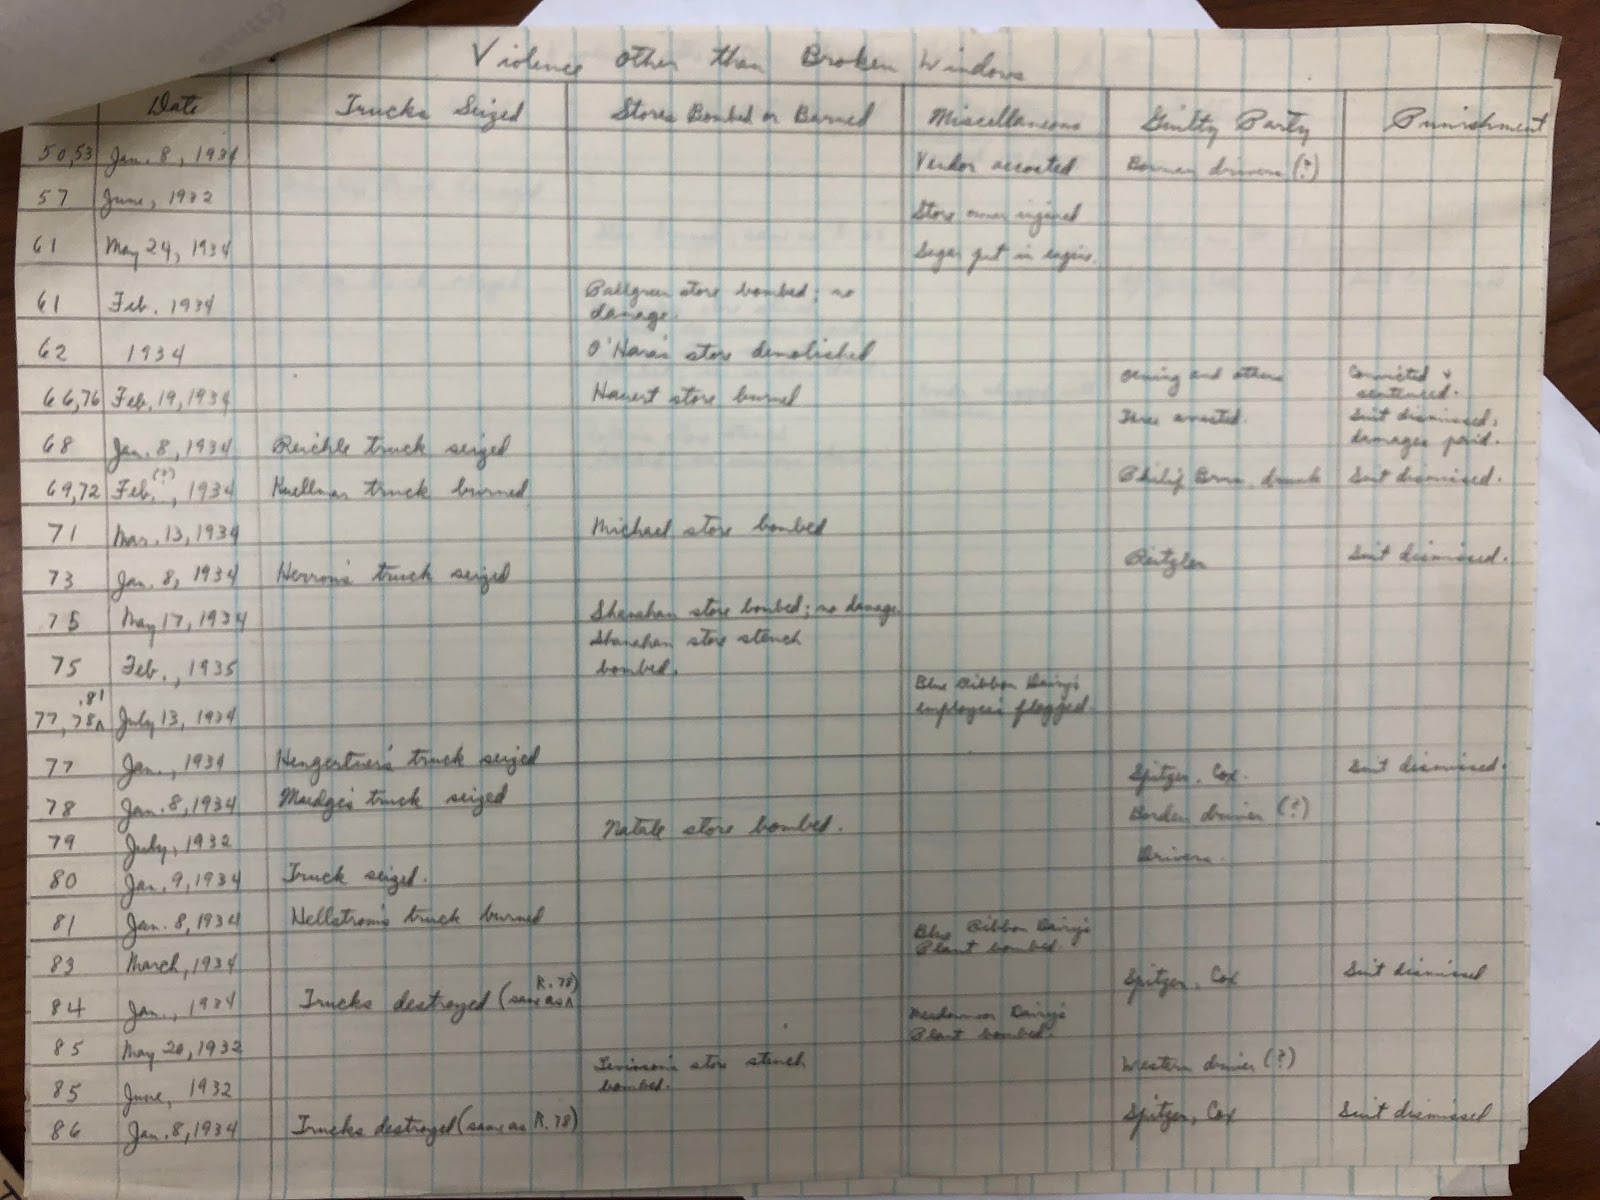 Violence other than Broken Windows
Date Trucks Seized Stores Bombed or Burned Miscellaneous Guilty Party Punishment
50,53 Jan. 8, 1934 Vendor accosted drivers (?)
57 June, 1932 Store owner injured
61 May 24, 1934 Sugar put in engine.
61 Feb. 1934 store bombed; no
damage.
62 1934 O'Hara's store demolished
66,76 Feb. 19, 1934 Hauert store burned and others Convicted &
sentenced.
68 Jan. 8, 1934 Reichle truck seized Three arrested. Suit dismissed;
damages paid.
69,72 Feb. (?), 1934 Kuellmar truck burned Philip drunk Suit dismissed.
71 Mar. 13, 1934 Michael store bombed
73 Jan. 8, 1934 Herron's truck seized Reitzler Suit dismissed.
75 May 17, 1934 Shanahan store bombed; no damage.
75 Feb., 1935 Shanahan store stench
bombed.
77, 78, 81 July 13, 1934 Blue Ribbon Dairy's
employees flogged.
77 Jan., 1934 Hengertner's truck seized Spitzer, Cox. Suit dismissed.
78 Jan. 8, 1934 Mudge's truck seized Borden driver (?)
79 July, 1932 Natale store bombed.
80 Jan. 9, 1934 Truck seized. Drivers.
81 Jan. 8, 1934 Hellstrom's truck burned
83 March, 1934 Blue Ribbon Dairy's
Plant bombed.
84 Jan., 1934 Trucks destroyed (same as R. 78) Spitzer, Cox Suit dismissed
85 May 20, 1932 Dairy's
Plant bombed.
85 June, 1932 Levinson's store stench
bombed. Western driver (?)
86 Jan. 8, 1934 Trucks destroyed (same as R. 78) Spitzer, Cox Suit dismissed